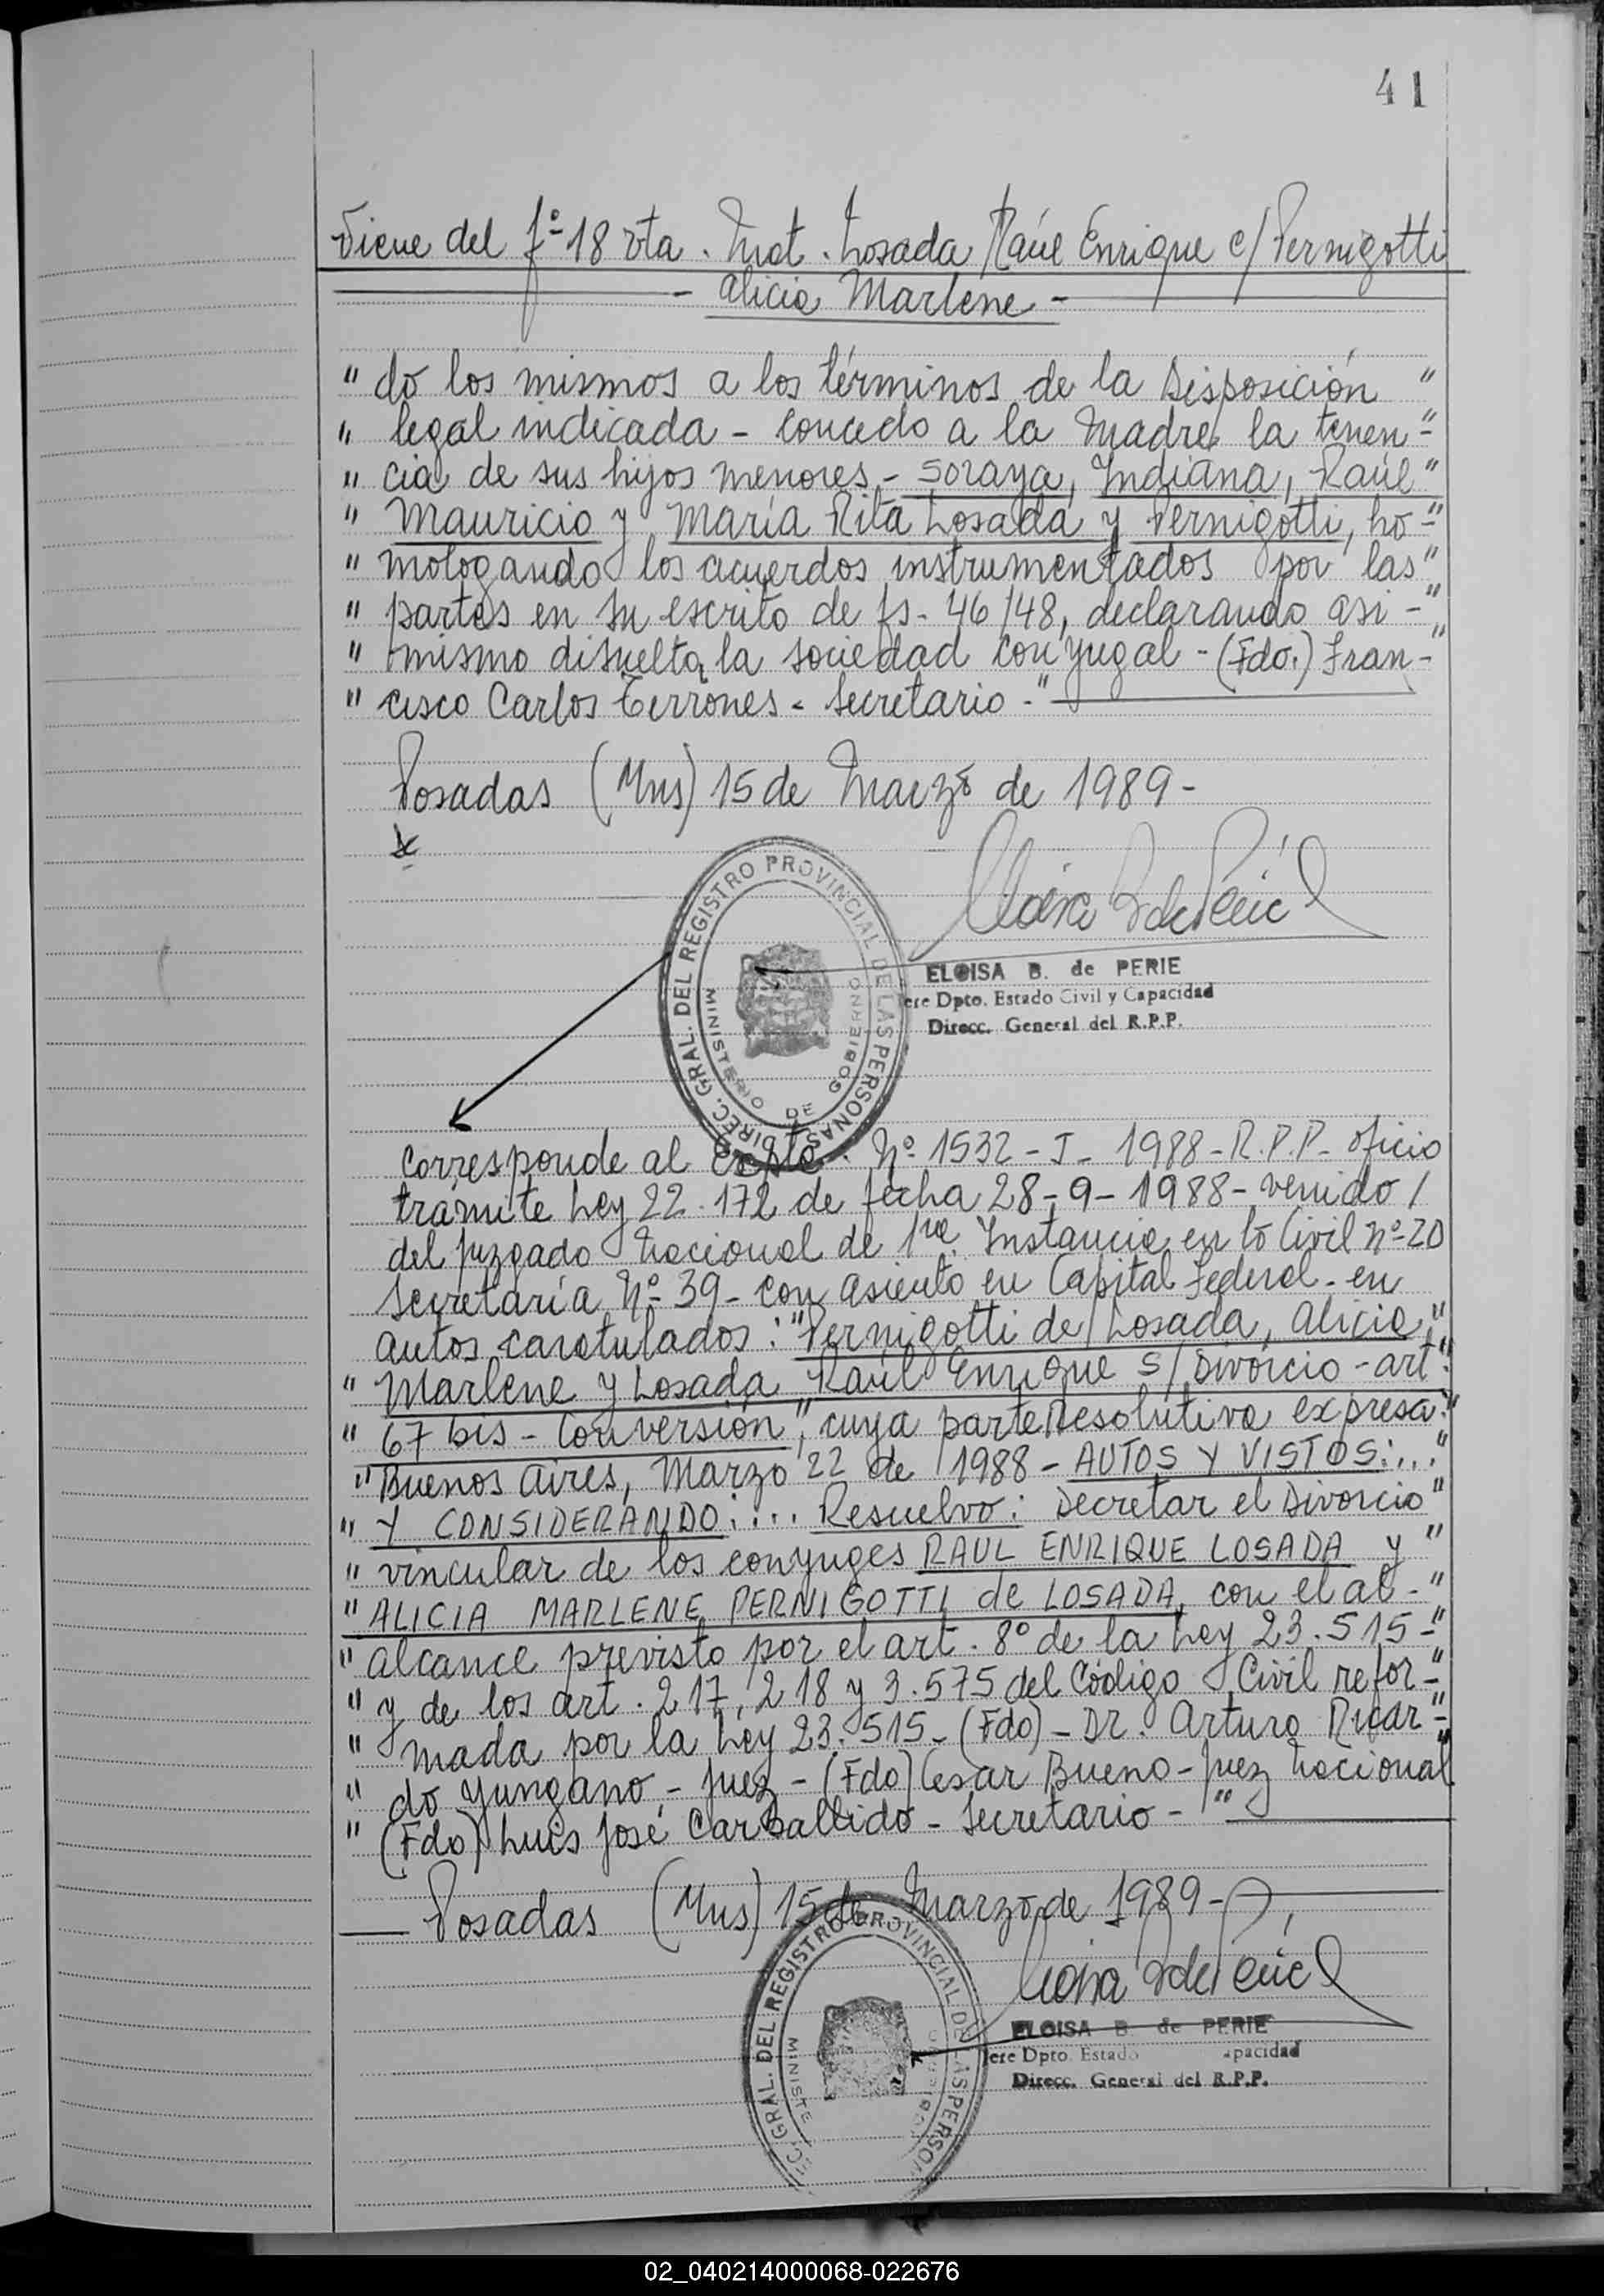 41
Viene del fº 18 vta. Mat. Losada Raúl Enrique c/ Pernigotti
- Alicia Marlene -
" do los mismos a los términos de la Disposición "
" legal indicada - concedo a la Madre la tenen- "
" cia de sus hijos menores - Soraya, Indiana, Raúl "
" Mauricio y María Rita Losada y Pernigotti, ho- "
" mologando los acuerdos instrumentados por las "
" partes en su escrito de fs. 46/48, declarando asi- "
" mismo disuelta la sociedad conyugal - (Fdo.) Fran- "
" cisco Carlos Terrones - Secretario - "
Posadas (Mns) 15 de Marzo de 1989 -
DIREC. GRAL. DEL REGISTRO PROVINCIAL DE LAS PERSONAS
MINISTERIO DE GOBIERNO
ELOISA B. de PERIE
Jefe Dpto. Estado Civil y Capacidad
Direcc. General del R.P.P.
Corresponde al Expte. Nº 1532 - I - 1988 - R.P.P. oficio
trámite Ley 22.172 de fecha 28-9-1988 - venido /
del Juzgado Nacional de 1ra. Instancia en lo Civil nº 20
Secretaría Nº 39 - con asiento en Capital Federal - en
autos caratulados: "Pernigotti de Losada, Alicia "
" Marlene y Losada Raúl Enrique S/ Divorcio - art. "
" 67 bis - Conversión", cuya parte Resolutiva expresa: "
" Buenos Aires, Marzo 22 de 1988 - AUTOS Y VISTOS:... "
" Y CONSIDERANDO:... Resuelvo: Decretar el Divorcio "
" vincular de los conyuges RAUL ENRIQUE LOSADA y "
" ALICIA MARLENE PERNIGOTTI de LOSADA, con el al- "
" alcance previsto por el art. 8º de la Ley 23.515 - "
" y de los art. 217, 218 y 3.575 del Código Civil refor- "
" mada por la Ley 23.515 - (Fdo) - DR. Arturo Ricar- "
" do Yungano - Juez - (Fdo) Cesar Bueno - Juez Nacional
" (Fdo) Luis José Carballido - Secretario - "
Posadas (Mns) 15 de Marzo de 1989 -
GRAL. DEL REGISTRO PROVINCIAL DE LAS PERSON
MINISTE
ELOISA B. de PERIE
Jefe Dpto. Estado apacidad
Direcc. General del R.P.P.
02_040214000068-022676